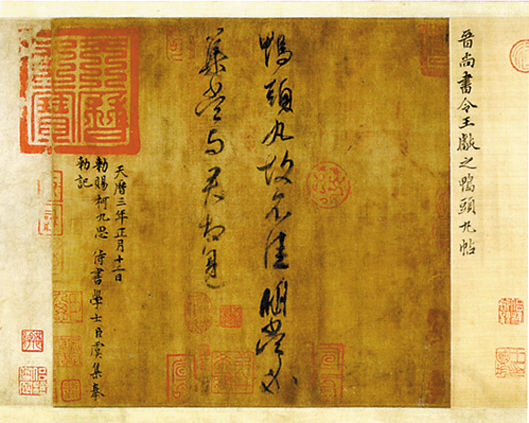 晉尚書令王獻之鴨頭丸帖
鴨頭丸故不佳明當必
集當與君相見
天曆之寶
天曆三年正月十二日
勑賜柯九思侍書學士臣虞集奉
勑記